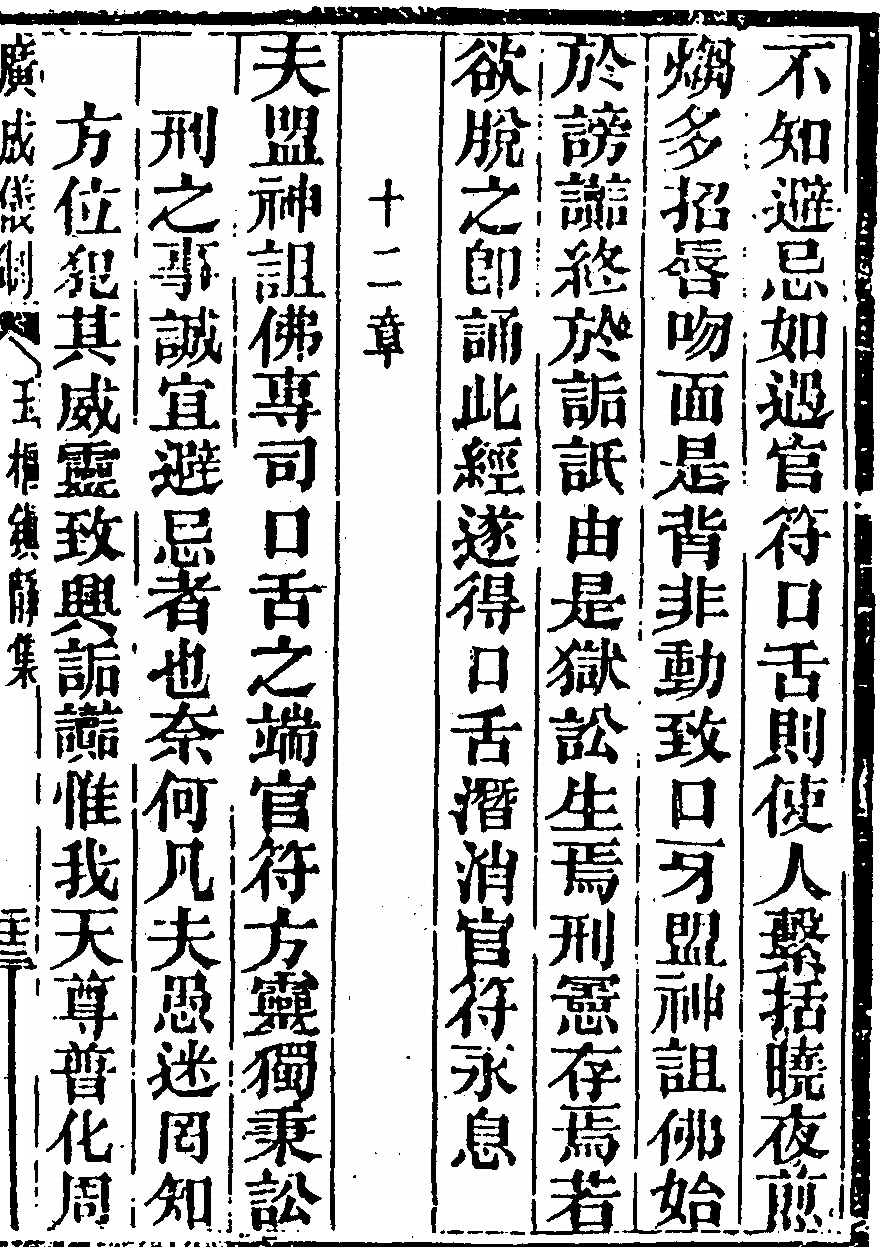 不知避忌如遇官符口舌則使人繫括曉夜煎
煼多招唇吻面是背非動致口牙盟神詛佛始
於謗讟終於詬詆由是獄訟生焉刑憲存焉若
欲脫之卽誦此經遂得口舌潛消官符永息
十二章
夫盟神詛佛專司口舌之端官符方靈獨秉訟
刑之事誠宜避忌者也奈何凡夫愚迷罔知
方位犯其威靈致興詬讟惟我天尊普化周
廣成儀制 玉樞鎮靜集